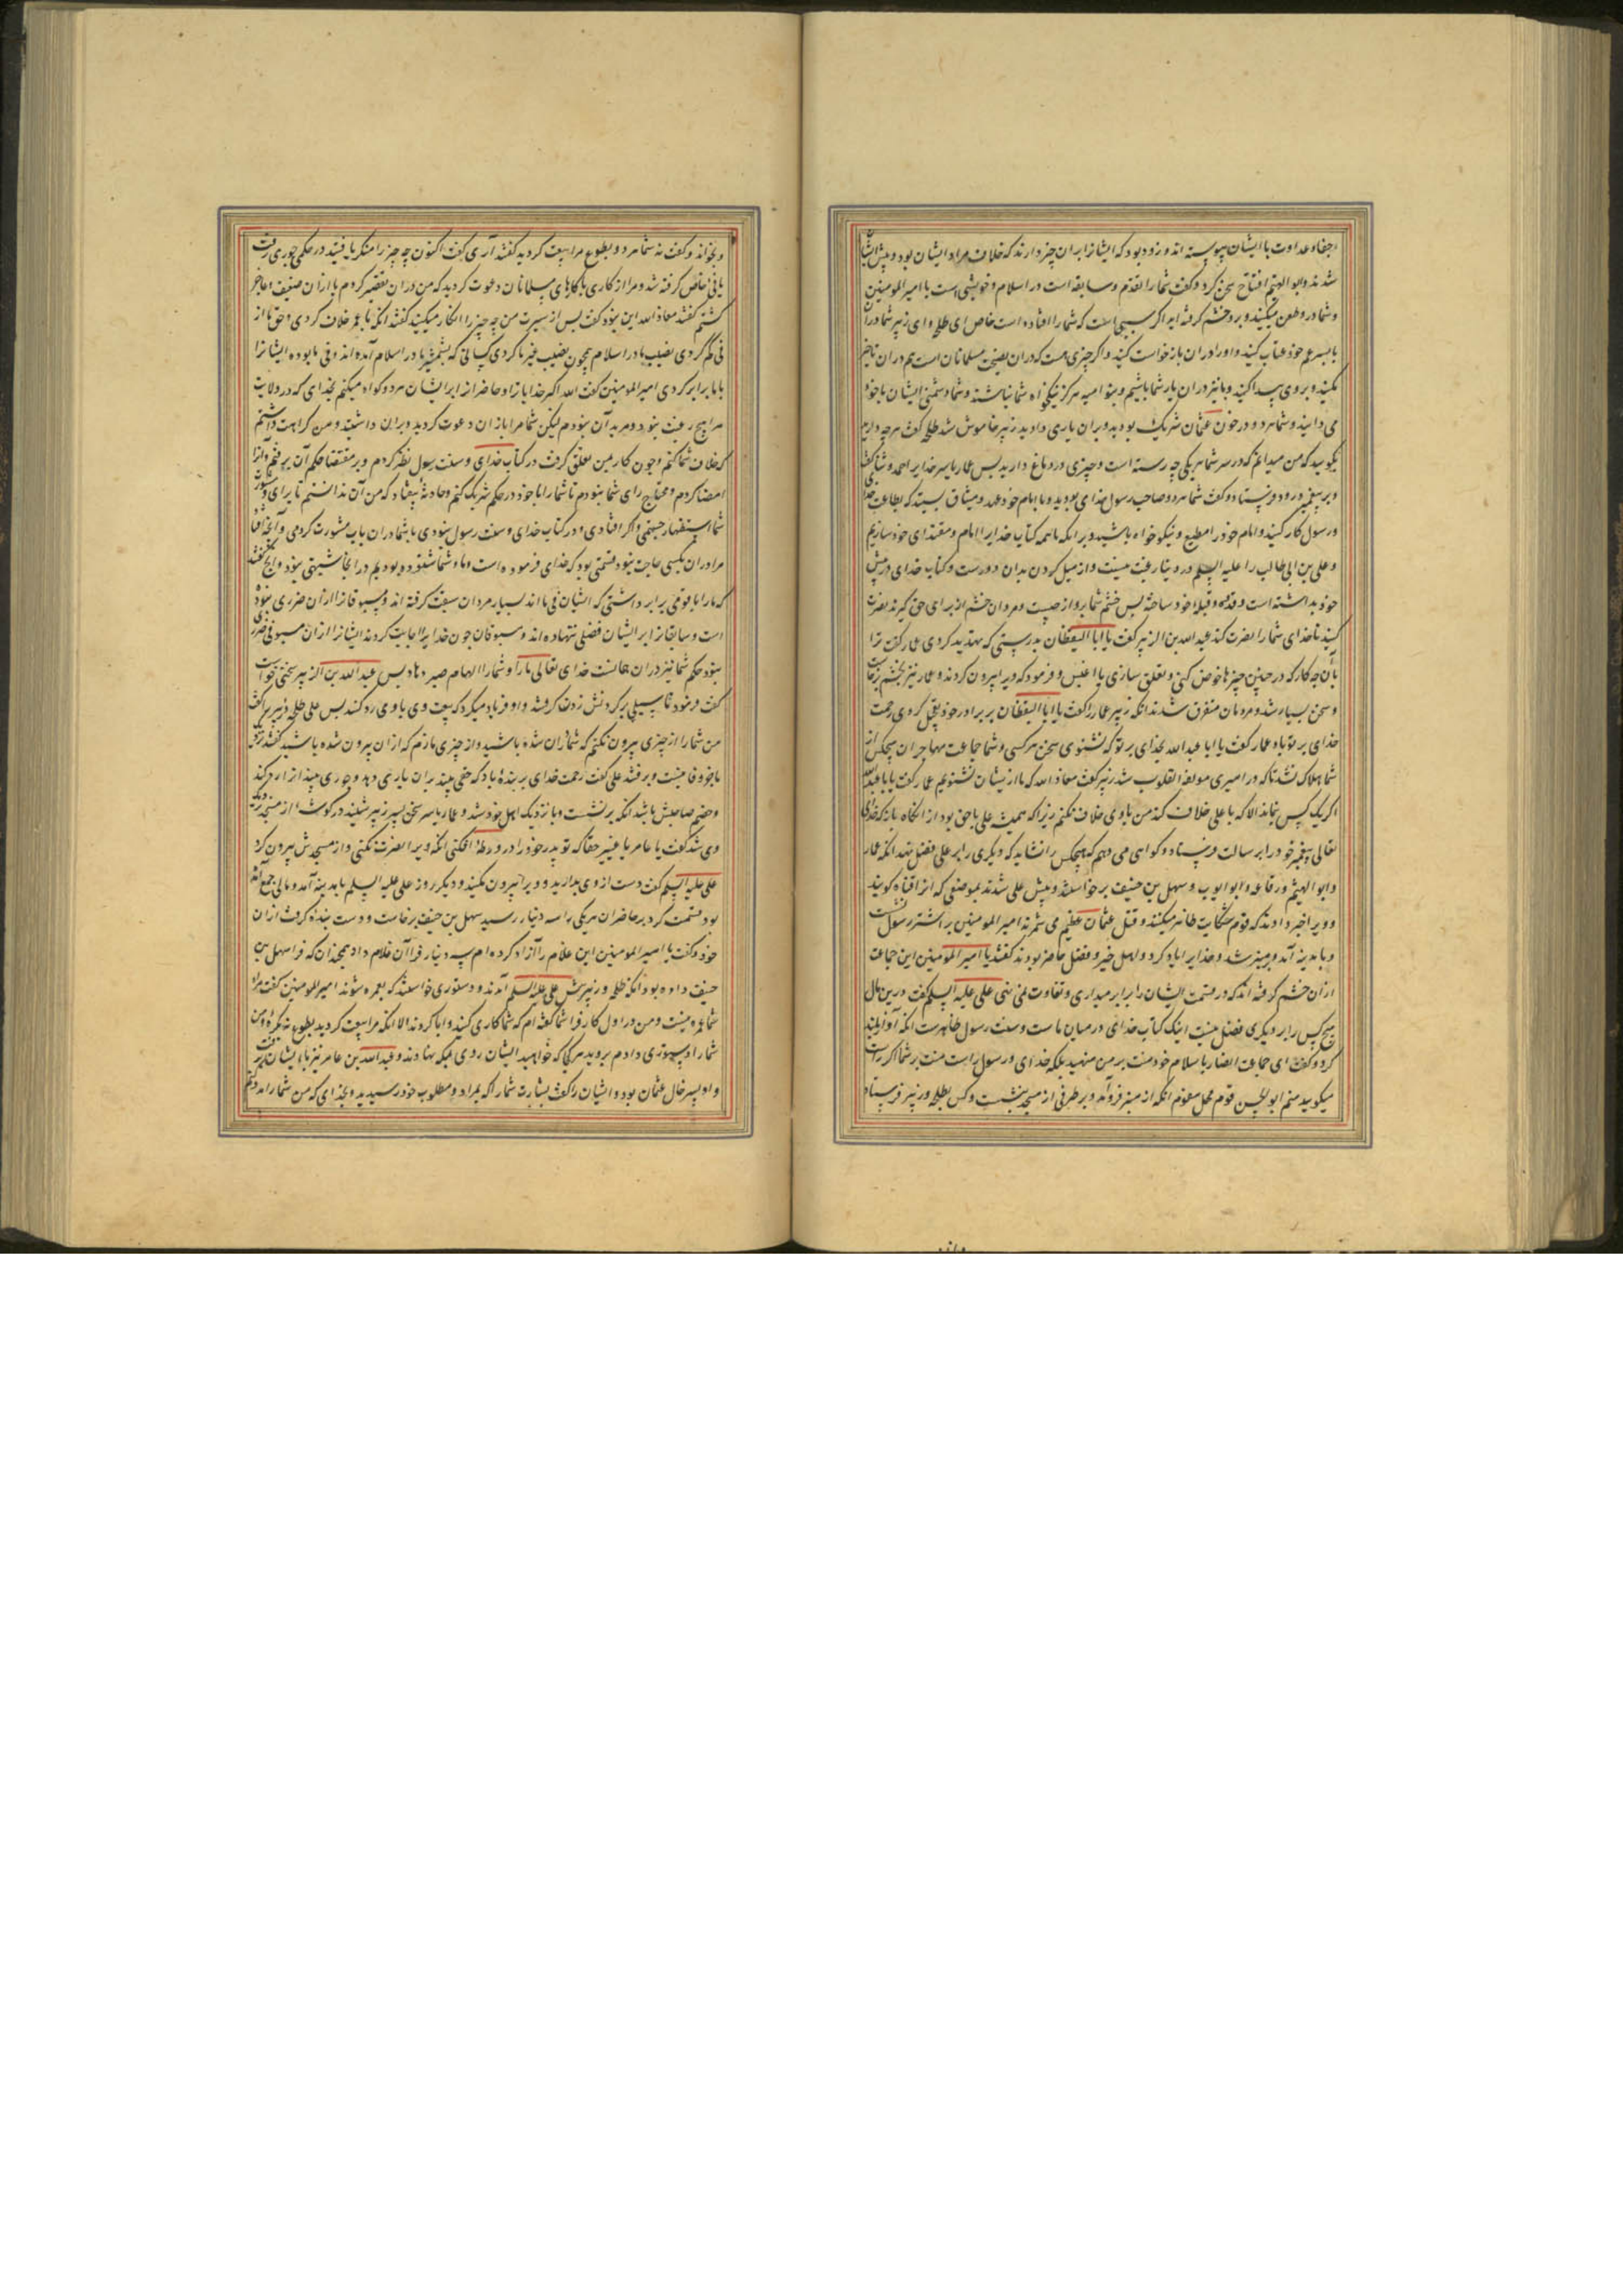 اجفا و عداوت با ایشان پیوسته اند و زود بود که ایشانرا بران چیز دارند که خلاف مراد ایشان بود و پیش ایشان
شدند و ابو الهیثم افتتاح سخن کرد و گفت شما را تقدم و سابقه است در اسلام و خویشی است با امیر المومنین
و شما درو طعن میکنید و برو خشم گرفته اید اگر سببی است که شما را افتاده است خاص ای طلحه و ای زبیر شما دران
با پسر عم خود عتاب کنید و او را دران بازخواست کنید و اگر چیزی هست که دران نصیحت مسلمانان است هم دران تاخیر
مکنید و بر وی پیدا کنید و ما نیز دران یار شما باشیم و بنو امیه هرگز نیکخواه شما نباشند و شما دشمنی ایشان با خود
می دانید و شما هر دو در خون عثمان شریک بودید و بران یاری دادید زبیر خاموش شد طلحه گفت هرچه دارید
بگویید که من میدانم که در سر شما هر یکی چه رسته است و چیزی در دماغ دارید پس عمار یاسر خدایرا حمد و ثنا گفت
و بر پیغمبر درود فرستاد و گفت شما هر دو صاحب رسول خدای بودید و با امام خود عهد و میثاق بستید که بطاعت خدا
و رسول کار کنید و امام خود را مطیع و نیکو خواه باشید و بر آنکه ما همه کتاب خدایرا امام و مقتدای خود سازیم
و علی بن ابی طالب را علیه السلم در دنیا رغبت نیست و از میل کردن بدان دورست و کتاب خدای در پیش
خود بداشته است و قدوه و قبله خود ساخته پس خشم شما برو از چیست و مردان خشم از برای حق گیرند نصرت
کنید تا خدای شما را نصرت کند عبد الله بن الزبیر گفت یا ابا الیقظان بدرستی که تهدید کردی عمار گفت ترا
بآن چه کار که در چنین چیزها خوض کنی و تعلق سازی یا اعبس و فرمود که ویرا بیرون کردند و عمار نیز بخشم برخاست
و سخن بسیار شد و مردمان متفرق شدند آنکه زبیر عمار را گفت یا ابا الیقظان بر برادر خود ثقیل کردی رحمت
خدای بر تو باد عمار گفت یا ابا عبد الله بخدای بر تو که نشنوی سخن هر کسی و شما جماعت مهاجران هیچکس از
شما هلاک نشد تا که در امیری مولفة القلوب شد زبیر گفت معاذ الله که ما از یشان نشنویم عمار گفت یا ابا عبد الله
اگر یک کس نماند الا که با علی خلاف کند من با وی خلاف نکنم زیرا که همیشه علی با حق بود از آنگاه باز که خدای
تعالی پیغمبر خود را بر سالت فرستاد و گواهی می دهم که هیچکس را نشاید که دیگری را بر علی فضل نهد آنکه عمار
و ابو الهیثم و رفاعه و ابو ایوب و سهل بن حنیف برخاستند و پیش علی شدند بموضعی که انرا قناة گویند
و ویرا خبر دادند که قوم شکایت ظاهر میکنند و قتل عثمان عظیم می شمرند امیر المومنین بر اشتر رسول نشست
و بامدینه آمد و بر منبر شد و خدایرا یاد کرد و اهل خیر و فضل حاضر بودند گفتند یا امیر المومنین این جماعت
ازان خشم گرفته اند که در قسمت ایشان را برابر میداری و تفاوت نمی نهی علی علیه السلم گفت درین مال
هیچ کس را بر دیگری فضل نیست اینک کتاب خدای درمیان ماست و سنت رسول ظاهرست آنکه آواز بلند
کرد و گفت ای جماعت انصار باسلام خود منت بر من منهید بلکه خدای و رسول راست منت بر شما اگر راست
میگویید منم ابو الحسن قوم محل معرم آنکه از منبر فرو آمد و بر طرفی از مسجد بنشست و کس بطلحه و زبیر فرستاد
و بخواند و گفت نه شما هر دو بطوع مرا بیعت کردید گفتند آری گفت اکنون چه چیز را منکر یافتید در حکمی جوری رفت
یا فیئی خاص گرفته شد و مرا از کاری با کارهای مسلمانان دعوت کردید که من دران تقصیر کردم یا ازان ضعیف و عاجز
گشتم گفتند معاذ الله این نبود گفت پس از سیرت من چه چیز را انکار میکنید گفتند آنکه با عمر خلاف کردی و حق ما از
فی کم کردی نصیب ما در اسلام همچون نصیب غیر ما کردی کسانی که بشمشیر ما در اسلام آمده اند و فی ما بوده ایشانرا
با ما برابر کردی امیر المومنین گفت الله اکبر خدایا ترا و حاضر انرا بر ایشان هر دو گواه میکنم بخدای که در ولایت
مرا هیچ رغبت نبود و مرید آن نبودم لیکن شما مرا بازان دعوت کردید و بران داشتید و من کراهت داشتم
که خلاف شما کنم و چون کار بمن تعلق گرفت در کتاب خدای و سنت رسول نظر کردم و بر مقتضا حکم آن برفتم و آنرا
امضا کردم و محتاج رای شما نبودم تا شما را با خود در حکم شریک کنم و حادثه نیفتاد که من آن ندانستم تا برای و مشورت
شما استظهار جستمی و اگر افتادی و در کتاب خدای و سنت رسول نبودی با شما دران باب مشورت کردمی و آنچه آنفا
مرا دران بکسی حاجت نبود قسمتی بود که خدای فرموده است و ما و شما شنوده بودیم در آنجا شبهتی نبود و آنچه گفتند
که ما را با قومی برابر داشتی که ایشان فی ما اند بسیار مردان سبقت گرفته اند و مسبوقانرا ازان ضرری نبوده
است و سابقانرا بر ایشان فضلی ننهاده اند و مسبوقان چون خدایرا اجابت کردند ایشانرا ازان مسبوقی ضرری
نبود حکم شما نیز دران همانست خدای تعالی ما را و شما را الهام صبر دهاد پس عبد الله بن الزبیر سخنی خواست
گفت فرمود تا سیلی بر گردنش زدن گرفتند و او فریاد میکرد که بیعت وی باوی رد کنند پس علی طلحه و زبیر را گفت
من شما را از چیزی بیرون نکنم که شما دران شده باشید و از چیزی بازم که ازان بیرون شده باشید گفتند نزدیک
ما جز وفا نیست و برفتند علی گفت رحمت خدای بر بنده باد که حقی بیند بران یاری دهد و جوری بیند انرا رد کند
و خصم صاحبش باشد آنکه برنشست و با نزدیک اهل خود شد و عمار یاسر سخن پسر زبیر شنید در گوشه از مسجد نزدیک
وی شد گفت یا عامر یا قنبر حقا که تو پدر خود را در ورطه افکنی آنکه ویرا نصرت نکنی و از مسجدش بیرون کرد
علی علیه السلم گفت دست از وی بدارید و ویرا بیرون مکنید و دیگر روز علی علیه السلم بامدینه آمد و مالی جمع آمده
بود قسمت کرد بر حاضران هر یکی را سه دینار رسید سهل بن حنیف برخاست و دست بنده گرفت ازان
خود و گفت یا امیر المومنین این غلام را آزاد کرده ام سه دینار فرا آن غلام داد همچندان که فرا سهل بن
حنیف داده بود آنکه طلحه و زبیر پیش علی علیه السلم آمدند و دستوری خواستند که بعمره شوند امیر المومنین گفت مراد
شما عمره نیست و من در اول کار فرا شما گفته ام که شما کاری کنید و ابا کردند الا آنکه مرا بیعت کردید بطوع نه بکره و من
شما را دستوری دادم بروید هر کجا که خواهید ایشان روی بمکه نهادند و عبد الله بن عامر نیز با ایشان بیرون
و او پسر خال عثمان بود و ایشان را گفت بشارت شما را که بمراد و مطلوب خود رسیدید و بخدای که من شما را مدد کنم